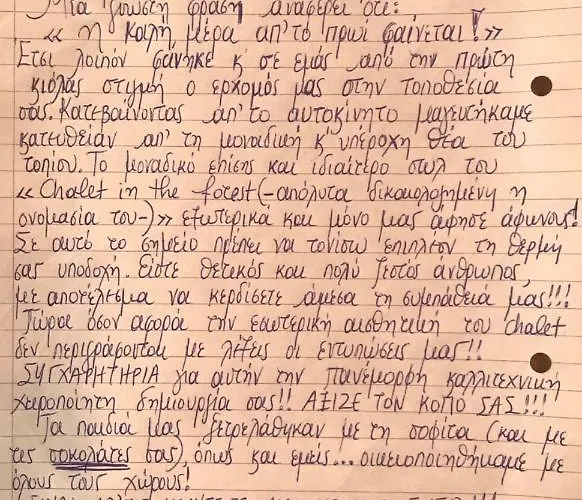 Μια γνωστή φράση αναφέρει ότι:
« η καλή μέρα απ' το πρωί φαίνεται! »
Έτσι λοιπόν φάνηκε κ' σε εμάς από την πρώτη
κιόλας στιγμή ο ερχομός μας στην τοποθεσία
σας. Κατεβαίνοντας απ' το αυτοκίνητο μαγευτήκαμε
κατευθείαν απ' τη μοναδική κ' υπέροχη θέα του
τοπίου. Το μοναδικό επίσης και ιδιαίτερο στυλ του
« Chalet in the forest (-απόλυτα δικαιολογημένη η
ονομασία του-) » εξωτερικά και μόνο μας άφησε άφωνους!
Σε αυτό το σημείο πρέπει να τονίσω επιπλέον τη θερμή
σας υποδοχή. Είστε θετικός και πολύ ζεστός άνθρωπος,
με αποτέλεσμα να κερδίσετε άμεσα τη συμπάθειά μας!!!
Τώρα όσον αφορά την εσωτερική αισθητική του chalet
δεν περιγράφονται με λέξεις οι εντυπώσεις μας!!
ΣΥΓΧΑΡΗΤΗΡΙΑ για αυτήν την πανέμορφη καλλιτεχνική
χειροποίητη δημιουργία σας!! ΑΞΙΖΕ ΤΟΝ ΚΟΠΟ ΣΑΣ!!!
Τα παιδιά μας ξετρελάθηκαν με τη σοφίτα (και με
τις σοκολάτες σας), όπως και εμείς... οικειοποιηθήκαμε με
όλους τους χώρους!